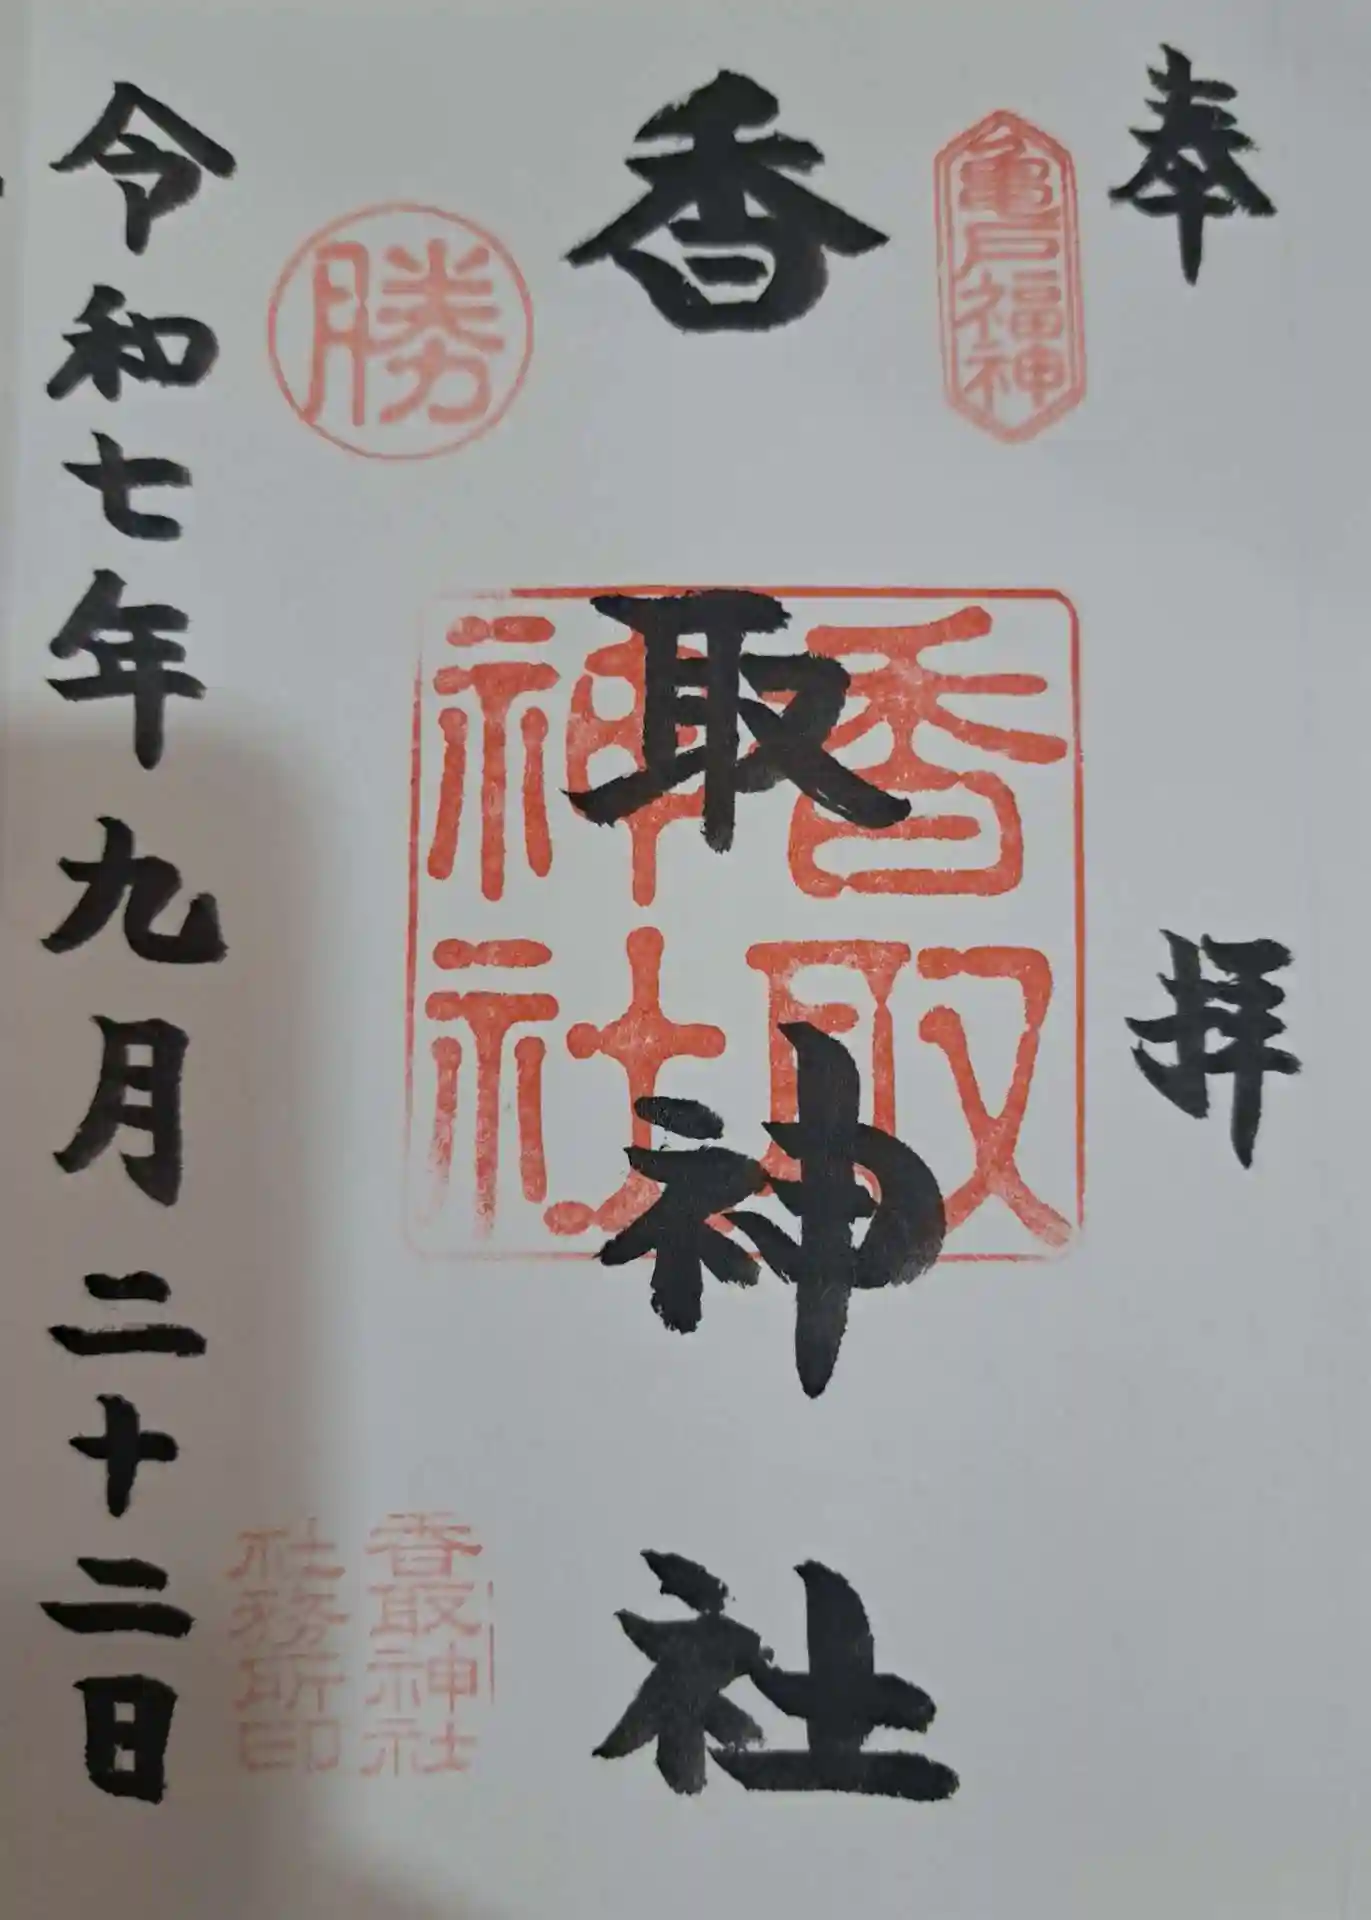 奉拝
亀戸福神
香取神社
香取神社
勝
香取神社
社務所印
令和七年九月二十二日